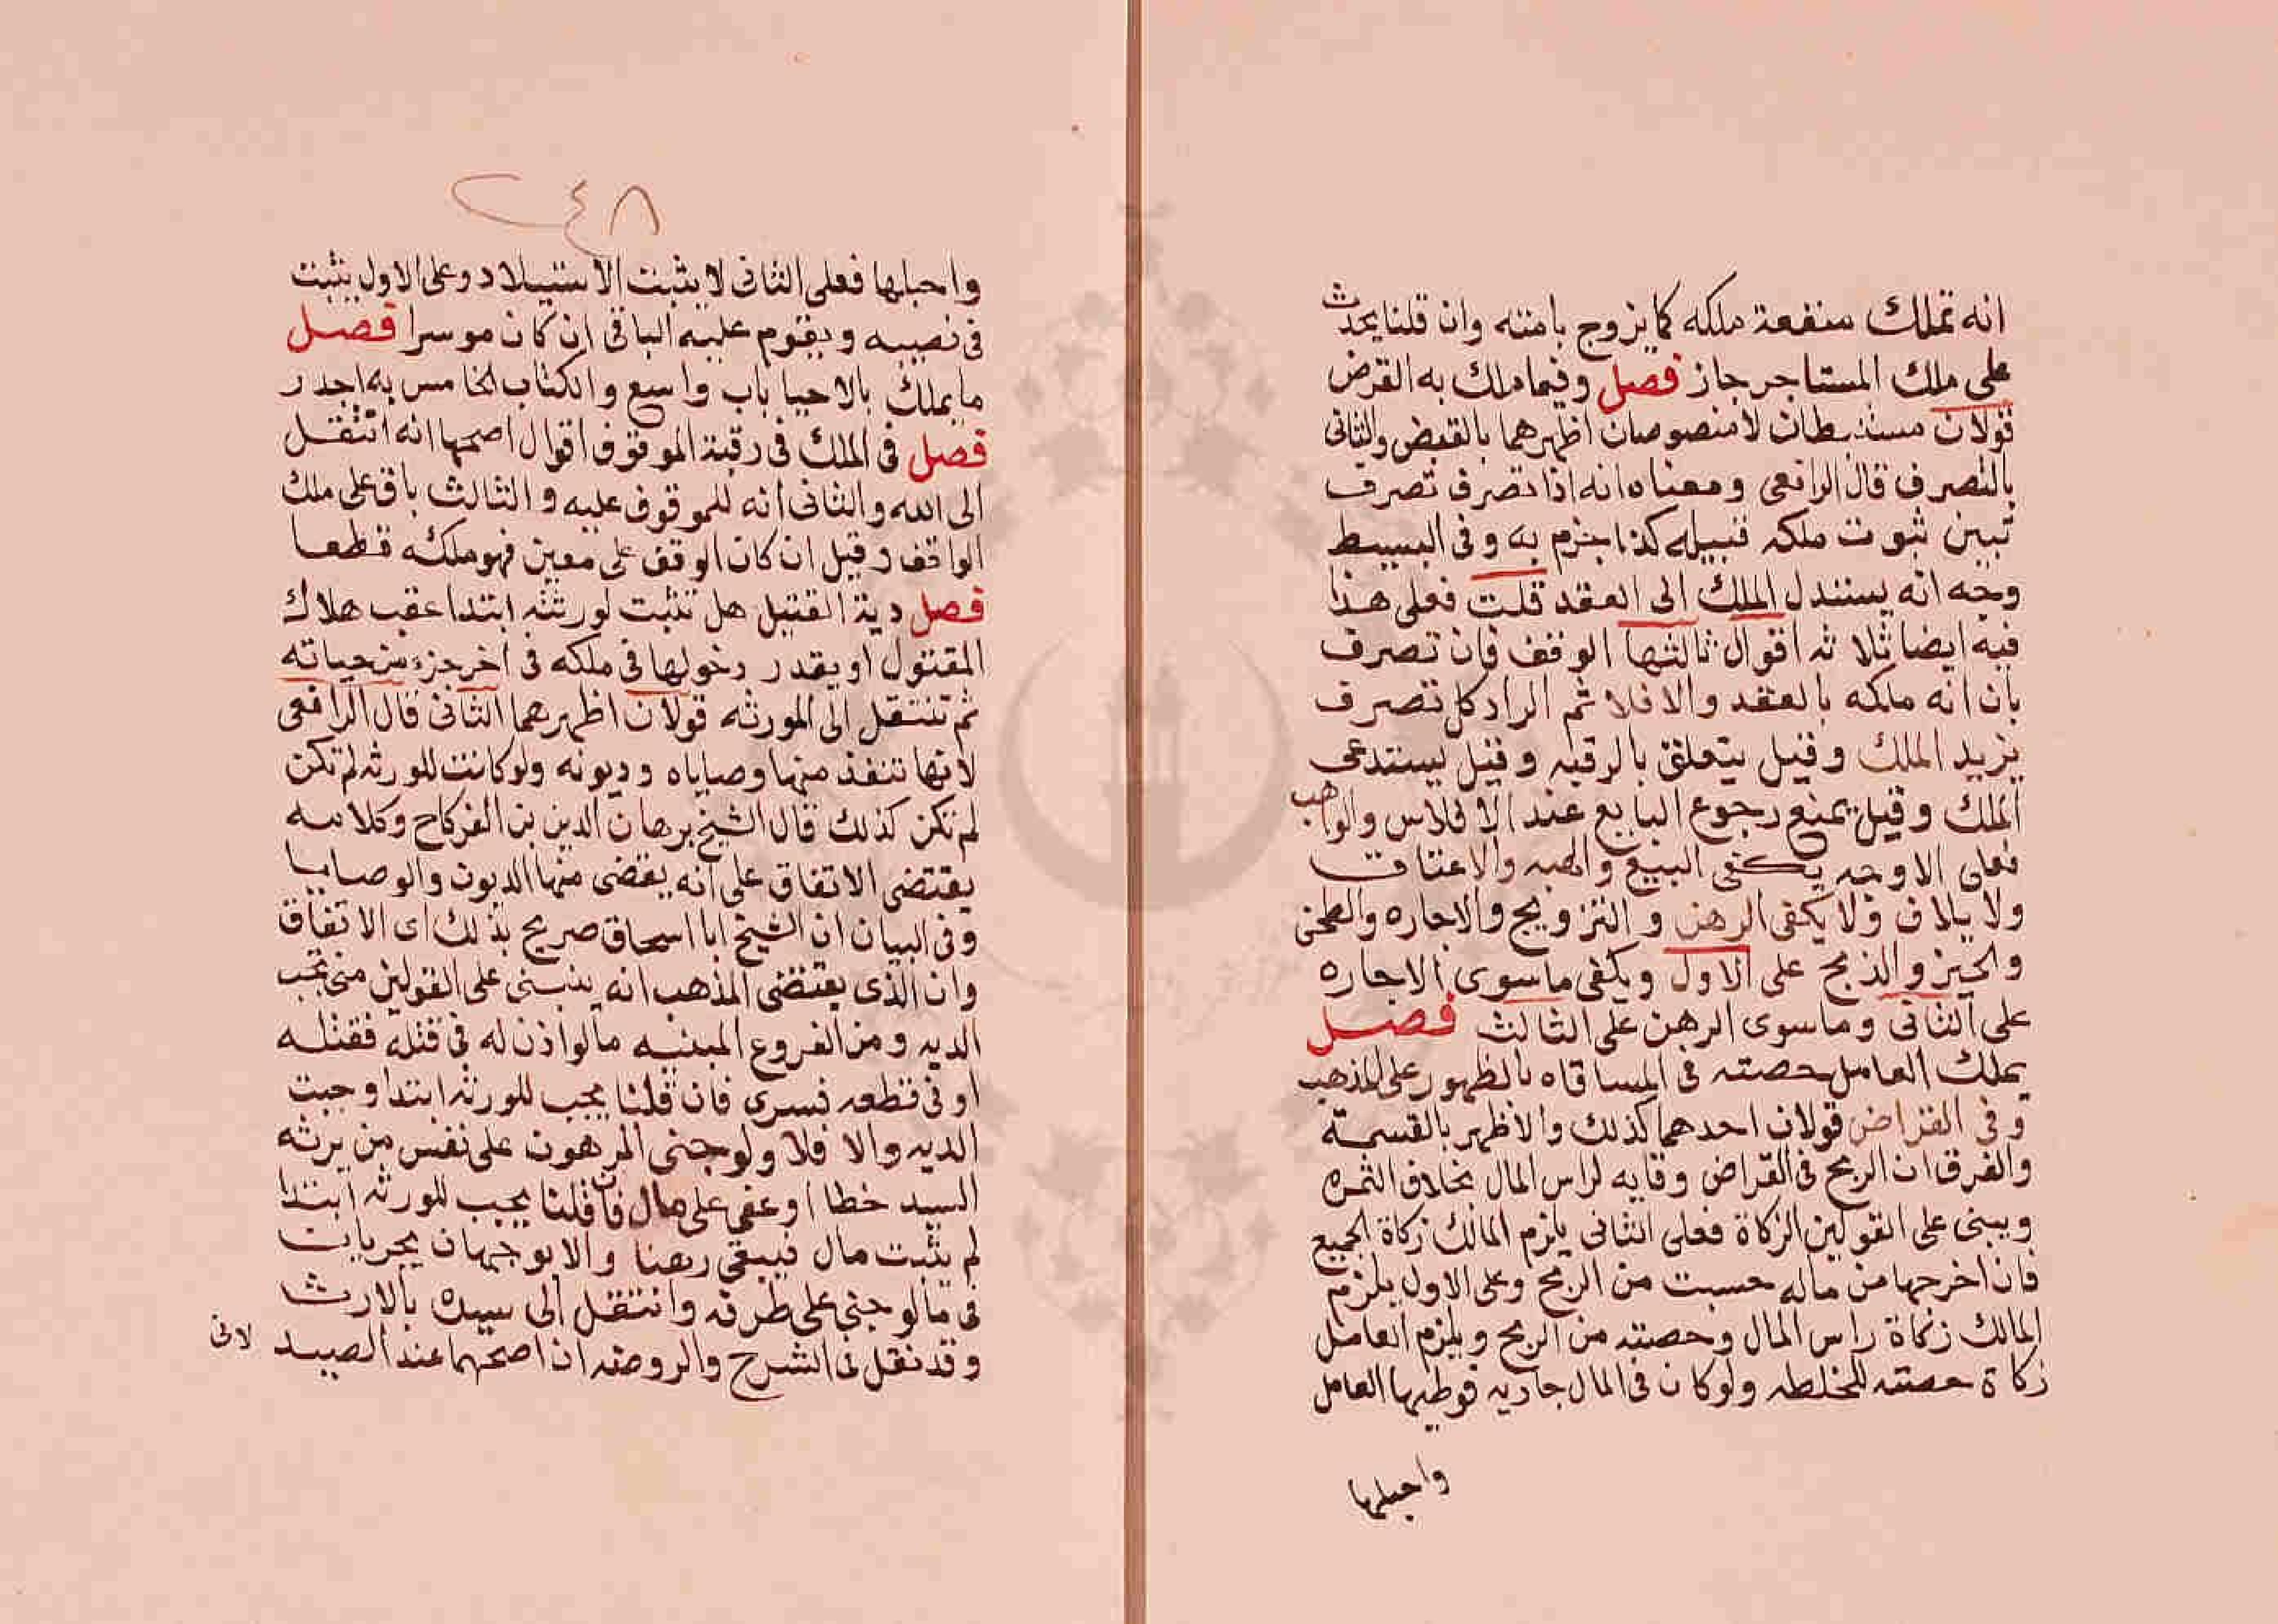 انه تملك منفعة ملكه كما يزوج بامته وان قلنا يحدث
على ملك المستاجر جاز فصل وفيما ملك به القرض
قولان مستنبطان لا منصوصان اظهرهما بالقبض والثانى
بالتصرف قال الرافعى ومعناه انه اذا تصرف تصرف
تبين ثبوت ملكه قبيله كذا جزم به وفى البسيط
وجه انه يستند الملك الى العقد قلت فعلى هذا
فيه ايضا ثلاثه اقوال ثالثها الوقف فان تصرف
بان انه ملكه بالعقد والا فلا ثم المراد كل تصرف
يزيد الملك وقيل يتعلق بالرقبه وقيل يستدعى
الملك وقيل يمنع رجوع البايع عند الافلاس والواهب
فعلى الاوجه يكفى البيع والهبه والاعتاق
ولايلان ولا يكفى الرهن والتزويج والاجاره والطحن
والخبز والذبح على الاول ويكفى ما سوى الاجاره
على الثانى وما سوى الرهن على الثالث فصل
يملك العامل حصته فى المساقاه بالظهور على المذهب
وفى القراض قولان احدهما كذلك والاظهر بالقسمة
والفرق ان الربح فى القراض وقايه لراس المال بخلاف الثمره
ويبنى على القولين الزكاة فعلى الثانى يلزم المالك زكاة الجميع
فان اخرجها من ماله حسبت من الربح وعلى الاول يلزم
المالك زكاة راس المال وحصته من الربح ويلزم العامل
زكاة حصته للخلطه ولو كان فى المال جاريه فوطيها العامل
واحبلها
٢٤٨
واحبلها فعلى الثانى لا يثبت الاستيلاد وعلى الاول يثبت
فى نصيبه ويقوم عليه الباقى ان كان موسرا فصل
ما يملك بالاحيا باب واسع والكتاب الخامس به اجدر
فصل فى الملك فى رقبة الموقوف اقوال اصحها انه انتقل
الى الله والثانى انه للموقوف عليه والثالث باق على ملك
الواقف وقيل ان كان الوقف على معين فهو ملكه قطعا
فصل دية القتيل هل تثبت لورثته ابتدا عقب هلاك
المقتول او يقدر دخولها فى ملكه فى اخر جزء من حياته
ثم تنتقل الى الورثه قولان اظهرهما الثانى قال الرافعى
لانها تنفذ منها وصاياه وديونه ولو كانت للورثه لم تكن
لم تكن كذلك قال الشيخ برهان الدين بن الفركاح وكلامه
يقتضى الاتفاق على انه يقضى منها الديون والوصايا
وفى البيان ان الشيخ ابا اسحاق صريح بذلك اى الاتفاق
وان الذى يقتضى المذهب انه ينبنى على القولين متى تجب
الديه ومن الفروع المبنيه ما لو اذن له فى قتله فقتله
او فى قطعه فسرى فان قلنا يجب للورثه ابتدا وجبت
الديه والا فلا ولو جنى المرهون على نفس من يرثه
السيد خطا او عفى على مال فان قلنا يجب للورثه ابتدا
لم يثبت مال فيبقى رهنا والا فوجهان يجريان
فى ما لو جنى على طرفه وانتقل الى سيده بالارث
وقد نقل فى الشرح والروضه ان اصحهما عند الصيد
لانى